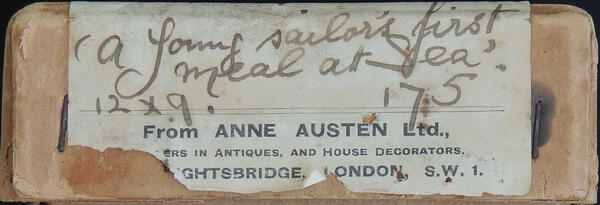 'A young sailor's first
meal at Sea'.
12 x 9. 175
From ANNE AUSTEN Ltd.,
ERS IN ANTIQUES, AND HOUSE DECORATORS,
IGHTSBRIDGE, LONDON, S.W. 1.